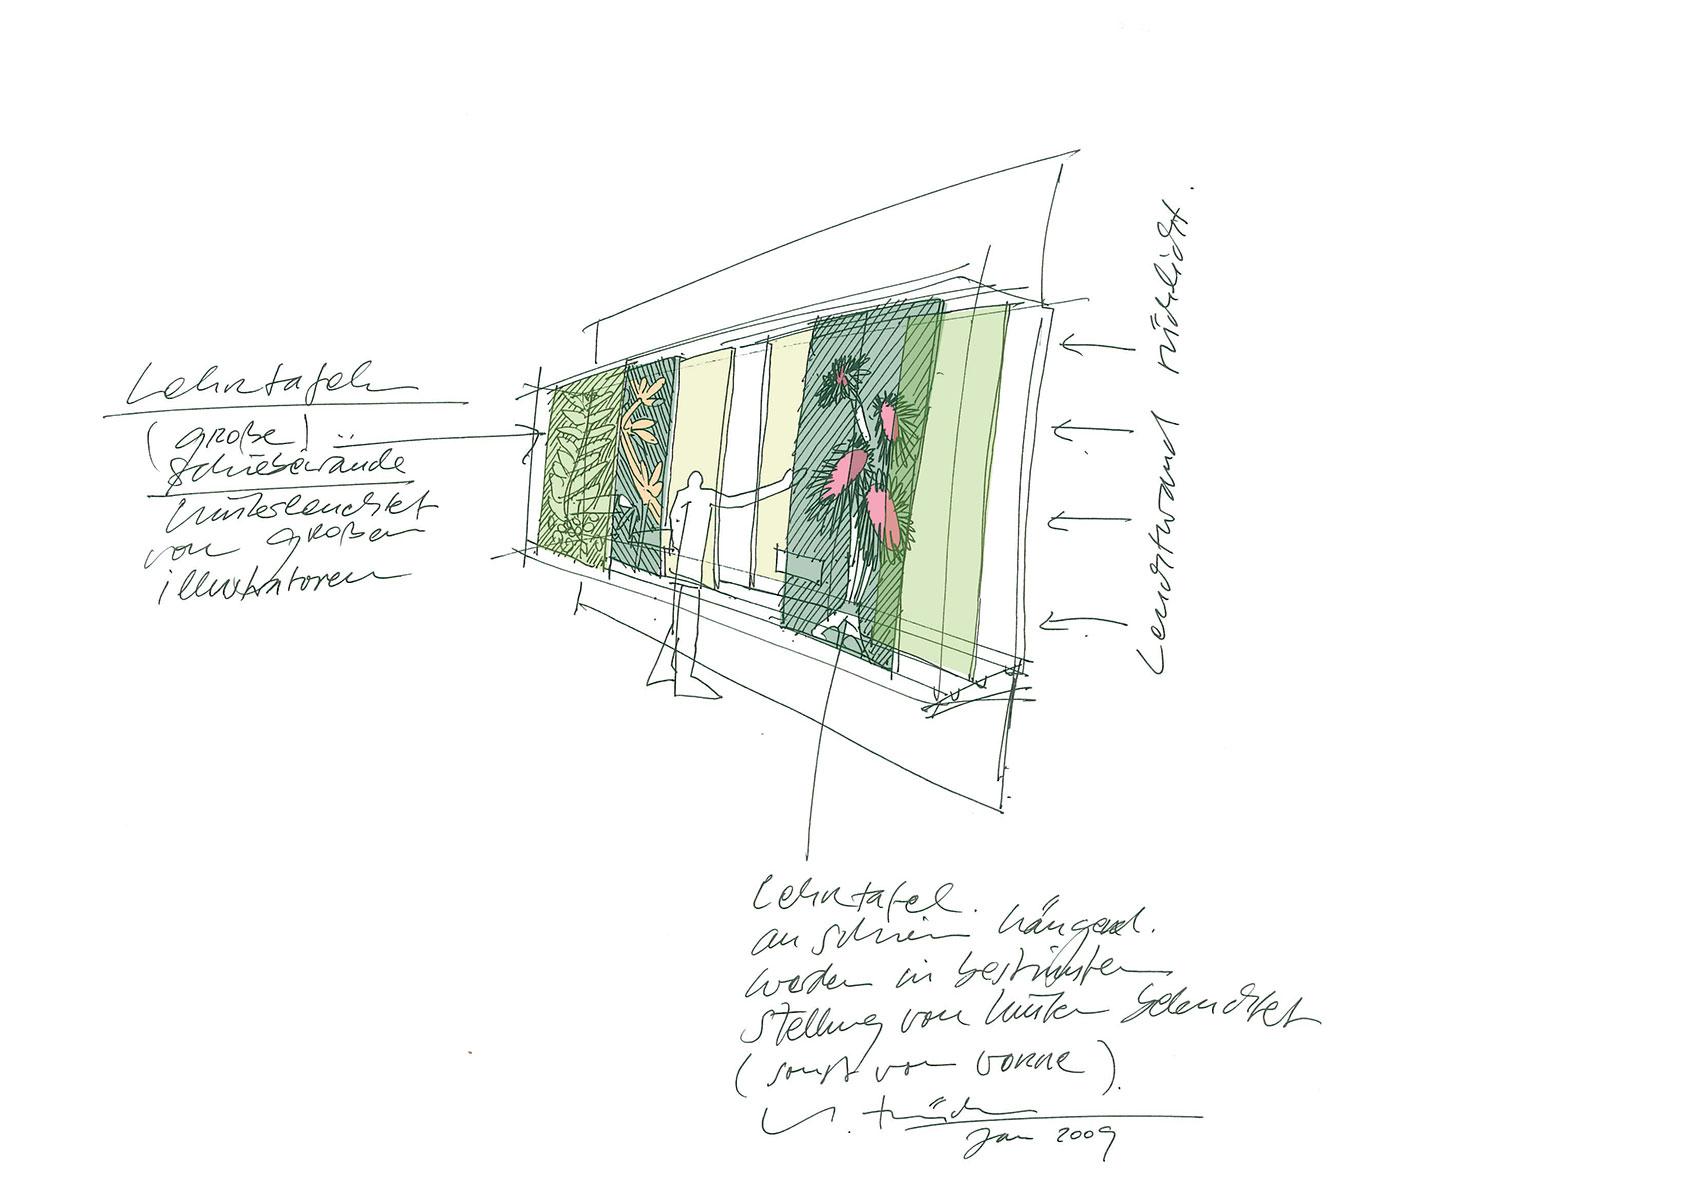 Lehrtafeln
(große)
Schiebewände
hinterleuchtet
von großen
illustratoren
Leuchtwand rücklicht.
Lehrtafel.
an Schien hängend.
werden in bestimmten
Stellung von hinten beleuchtet
(sonst von vorne).
Jan 2009